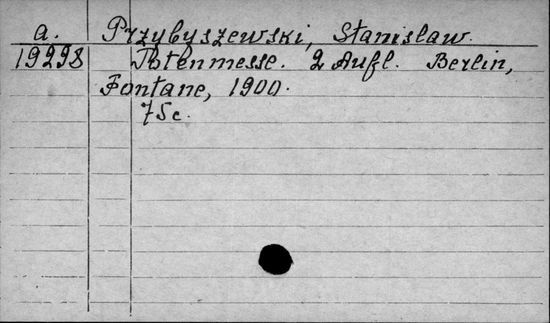 a. Przybyszewski, Stanislaw.
19298 Totenmesse. 2 Aufl. Berlin,
Fontane, 1900.
75c.